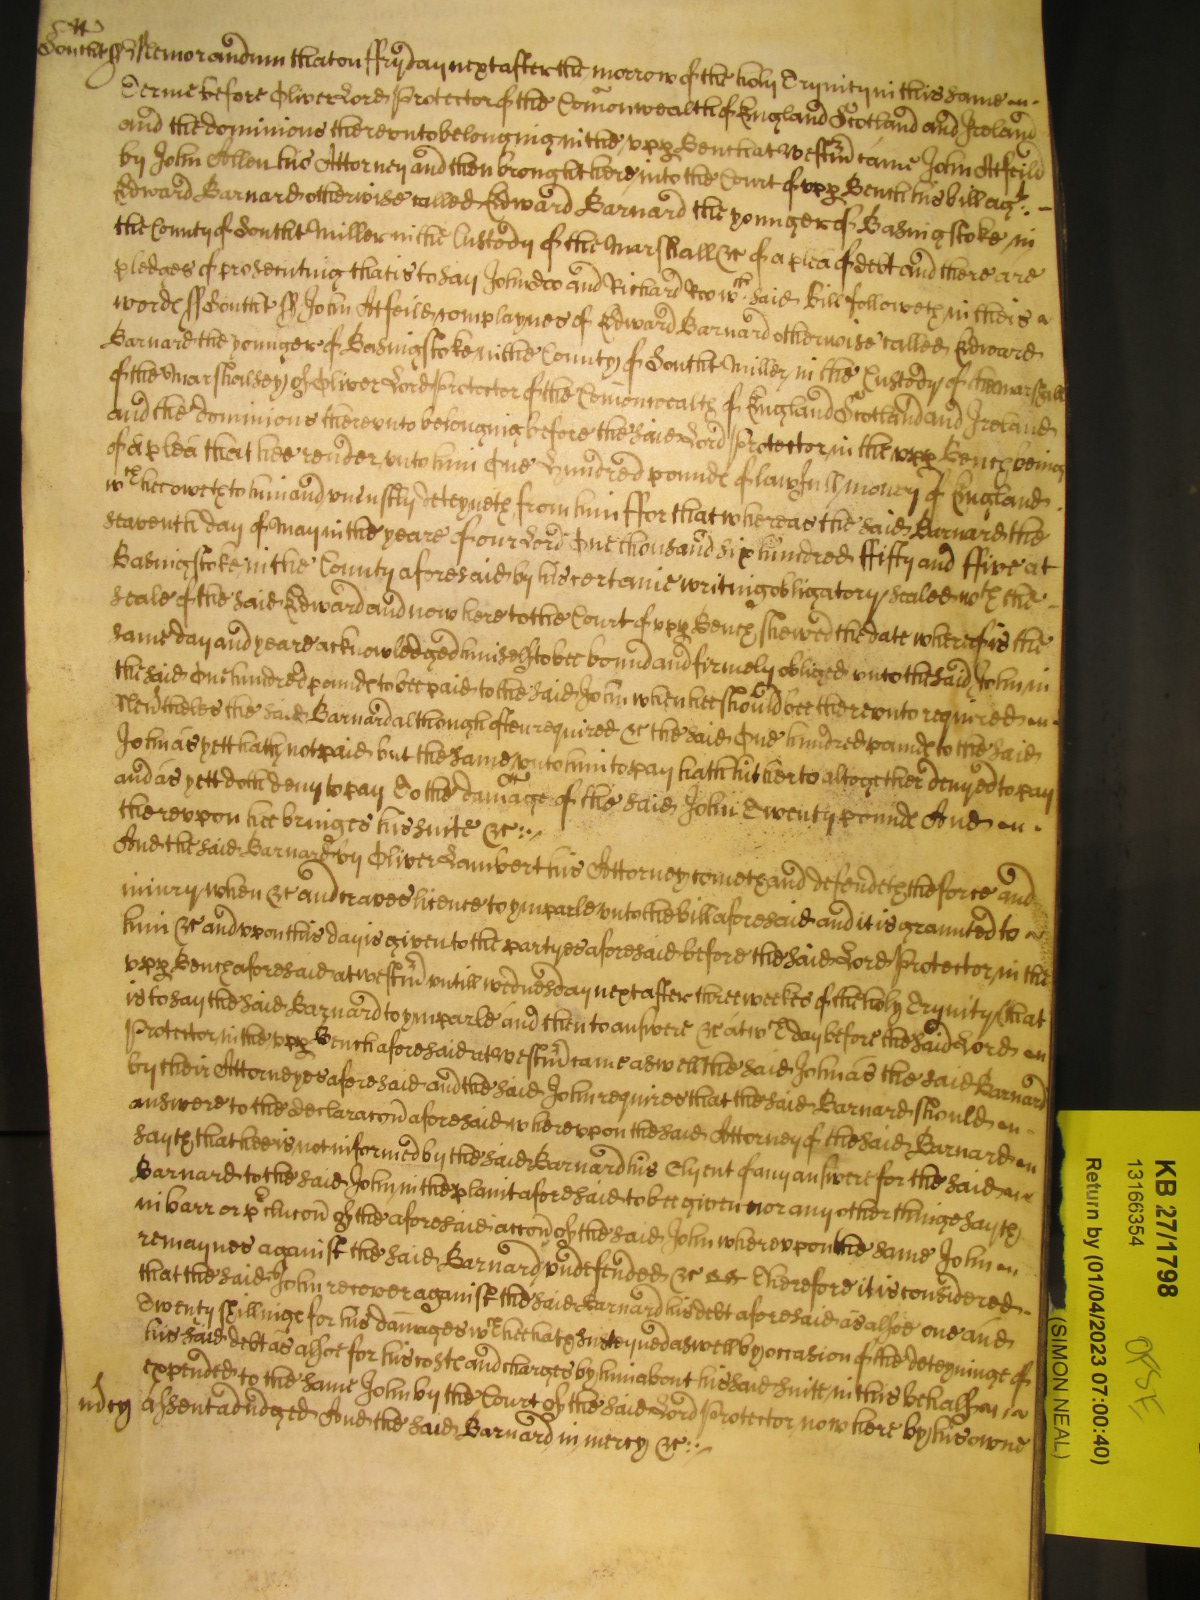 Southt ss Memorandum that on ffryday next after the morrow of the holy Trynity in this same
Terme before Oliver Lord Protector of the Comonwealth of England Scotland and Ireland
and the dominions therevnto belonging in the vpp Bench at Westmr came John Atfeild
by John Allen his Attorney and then brought here into the Court of vpp Bench his bill agt
Edward Barnard otherwise called Edward Barnard the younger of Basingstoke in
the County of Southt Miller in the Custody of the Marshall &c of a plea of debt and there are
pledges of prosecuting that is to say John Doo and Richard Roo wch said Bill followeth in theis
wordes ss Southt ss John Atfeild complaynes of Edward Barnard otherwise called Edward
Barnard the younger of Basingstoke in the County of Southt Miller in the Custody of the Marshall
of the Marshalsey of Oliver Lord Protector of the Comonwealth of England Scotland and Ireland
and the dominions therevnto belonging before the said Lord Protector in the vpp Bench being
of a plea that hee render vnto him One hundred pounds of lawfull money of England
wch hee oweth to him and vniustly deteyneth from him ffor that whereas the said Barnard the
seaventh day of May in the yeare of our Lord One thousand six hundred ffifty and ffive at
Basingstoke in the County aforesaid by his certaine writing obligatory sealed wth the
seale of the said Edward and now here to the Court of vpp Bench shewed the date whereof is the
same day and yeare acknowledged himself to bee bound and firmely obliged vnto the said John in
the said One hundred pounds to bee paid to the said John when hee should bee therevnto required
Nevertheles the said Barnard although often required &c the said One hundred pounds to the said
John as yett hath not paid but the same vnto him to pay hath hitherto altogether denyed to pay
and as yett doth deny to pay To the damage of the said John Twenty pounds And
therevpon hee bringes his suite &c
And the said Barnard by Oliver Lambert his Attorney cometh and defendeth the force and
iniury when &c and craves licence to ymparle vnto the bill aforesaid and it is graunted to
him &c and vpon this day is given to the partyes aforesaid before the said Lord Protector in the
vpp Bench aforesaid at Westmr vntill wednesday next after three weekes of the holy Trynity that
is to say the said Barnard to ymparle and then to answere &c at wch day before the said Lord
Protector in the vpp Bench aforesaid at Westmr came aswell the said John as the said Barnard
by their Attorneyes aforesaid and the said John requires that the said Barnard should
answere to the declaracon aforesaid wherevpon the said Attorney of the said Barnard
sayth that hee is not informed by the said Barnard his Clyent of any answere for the said
Barnard to the said John in the plaint aforesaid to bee given nor any other thinge sayth
in barr or pclucon of the aforesaid accon of the said John wherevpon the same John
remaynes against the said Barnard vndefended &c Therefore it is considered
that the said John recover against the said Barnard his debt aforesaid as alsoe one and
Twenty shillings for his damages wch hee hath susteyned aswell by occasion of the deteyninge of
his said debt as alsoe for his costs and charges by him about his said suite in this behalf
expended to the same John by the Court of the said Lord Protector now here by his owne
mcy assent adiudged And the said Barnard in mercy &c
KB 27/1798
13166354
Return by (01/04/2023 07:00:40)
(SIMON NEAL)